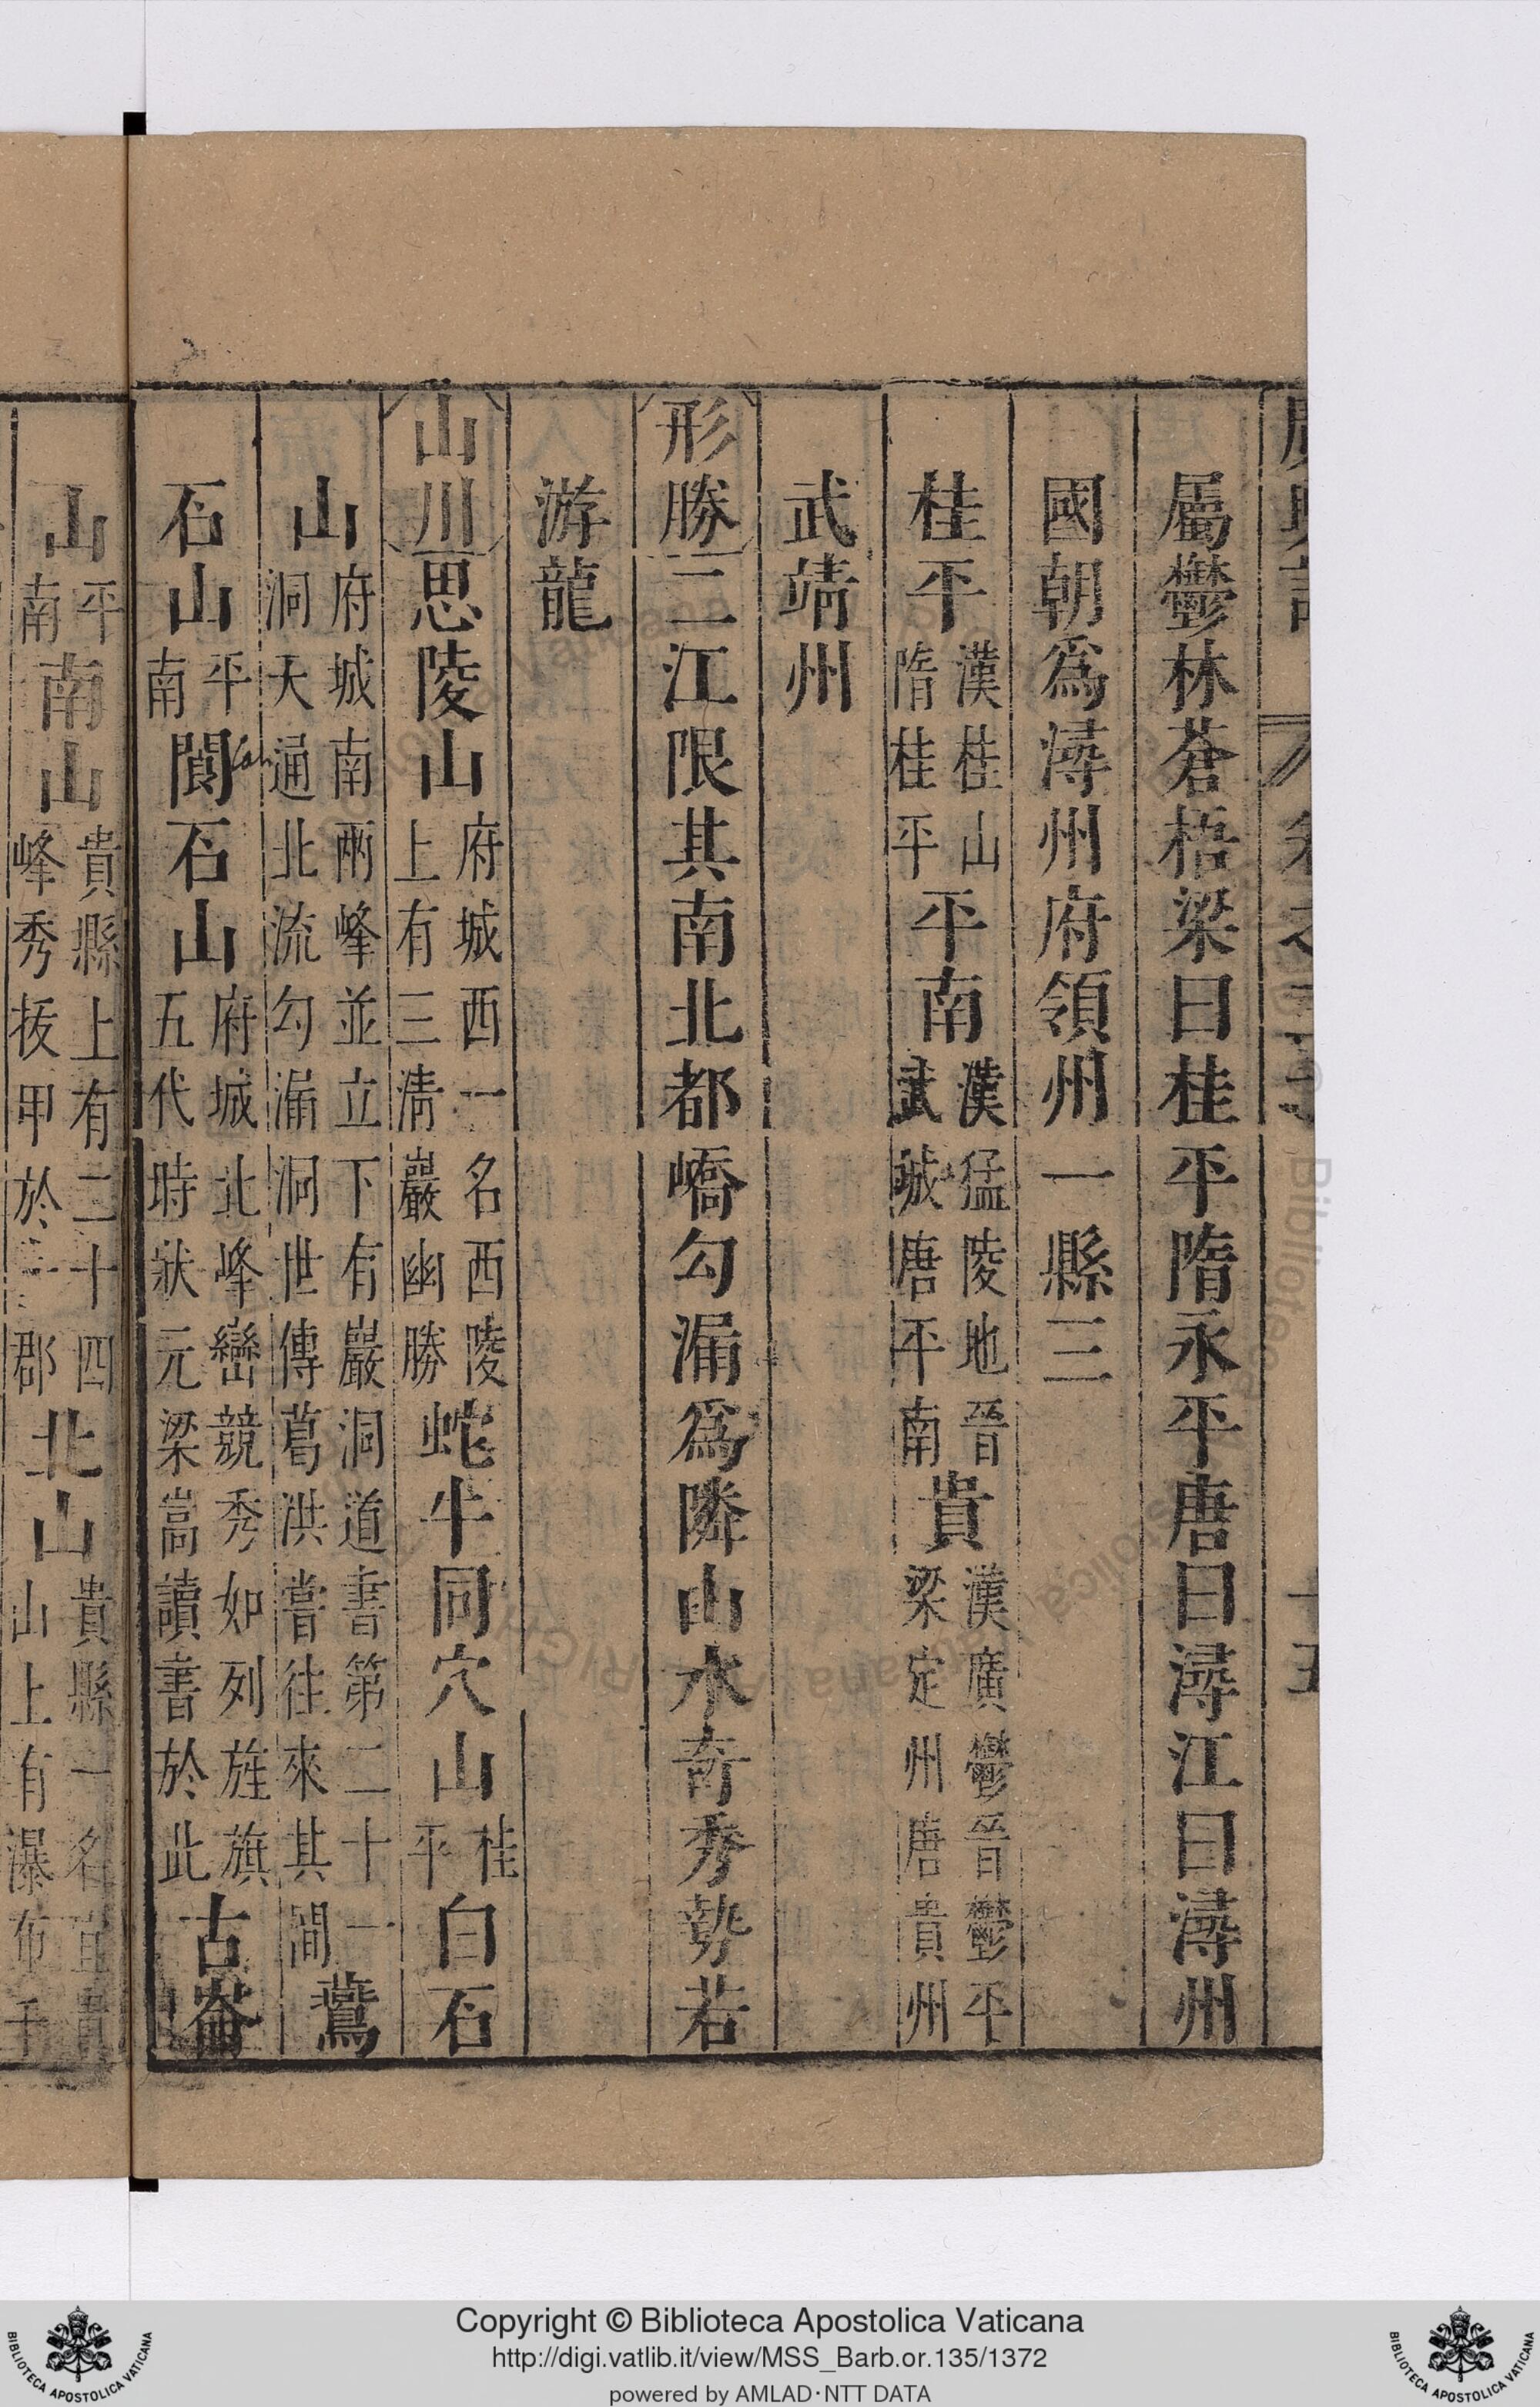 屬鬱林蒼梧梁曰桂平隋永平唐曰潯江曰潯州
國朝爲潯州府領州一縣三
桂平漢桂山隋桂平平南漢猛陵地晉武城唐平南貴漢廣鬱晉鬱平梁定州唐貴州
武靖州
形勝三江限其南北都嶠勾漏爲隣山水奇秀勢若
游龍
山川思陵山府城西一名西陵上有三清巖幽勝蛇牛同穴山桂平白石
山府城南兩峰並立下有巖洞道書第二十一洞天通北流勾漏洞世傳葛洪嘗往來其間鵞
石山平南閬石山府城北峰巒競秀如列旌旗五代時狀元梁嵩讀書於此古崙
山平南南山貴縣上有二十四峰秀拔甲於一郡北山貴縣一名宜貴山上有瀑布千
Copyright © Biblioteca Apostolica Vaticana
http://digi.vatlib.it/view/MSS_Barb.or.135/1372
powered by AMLAD·NTT DATA
BIBLIOTECA APOSTOLICA VATICANA
BIBLIOTECA APOSTOLICA VATICANA